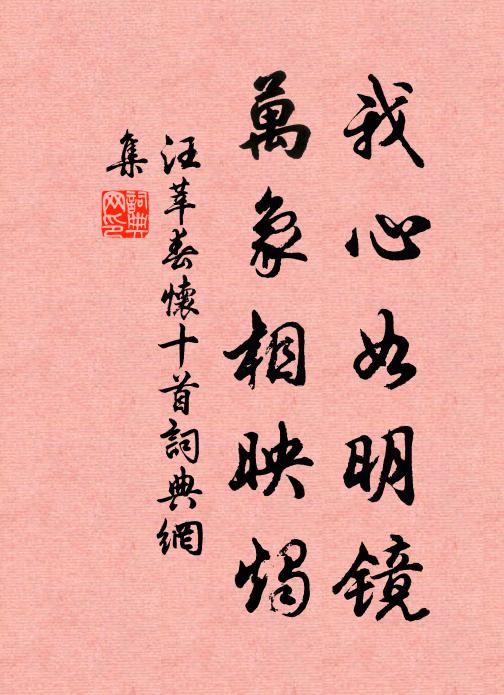 我心如明镜
萬象相映燭
汪莘春懷十首詞典網
集
詞典
网印